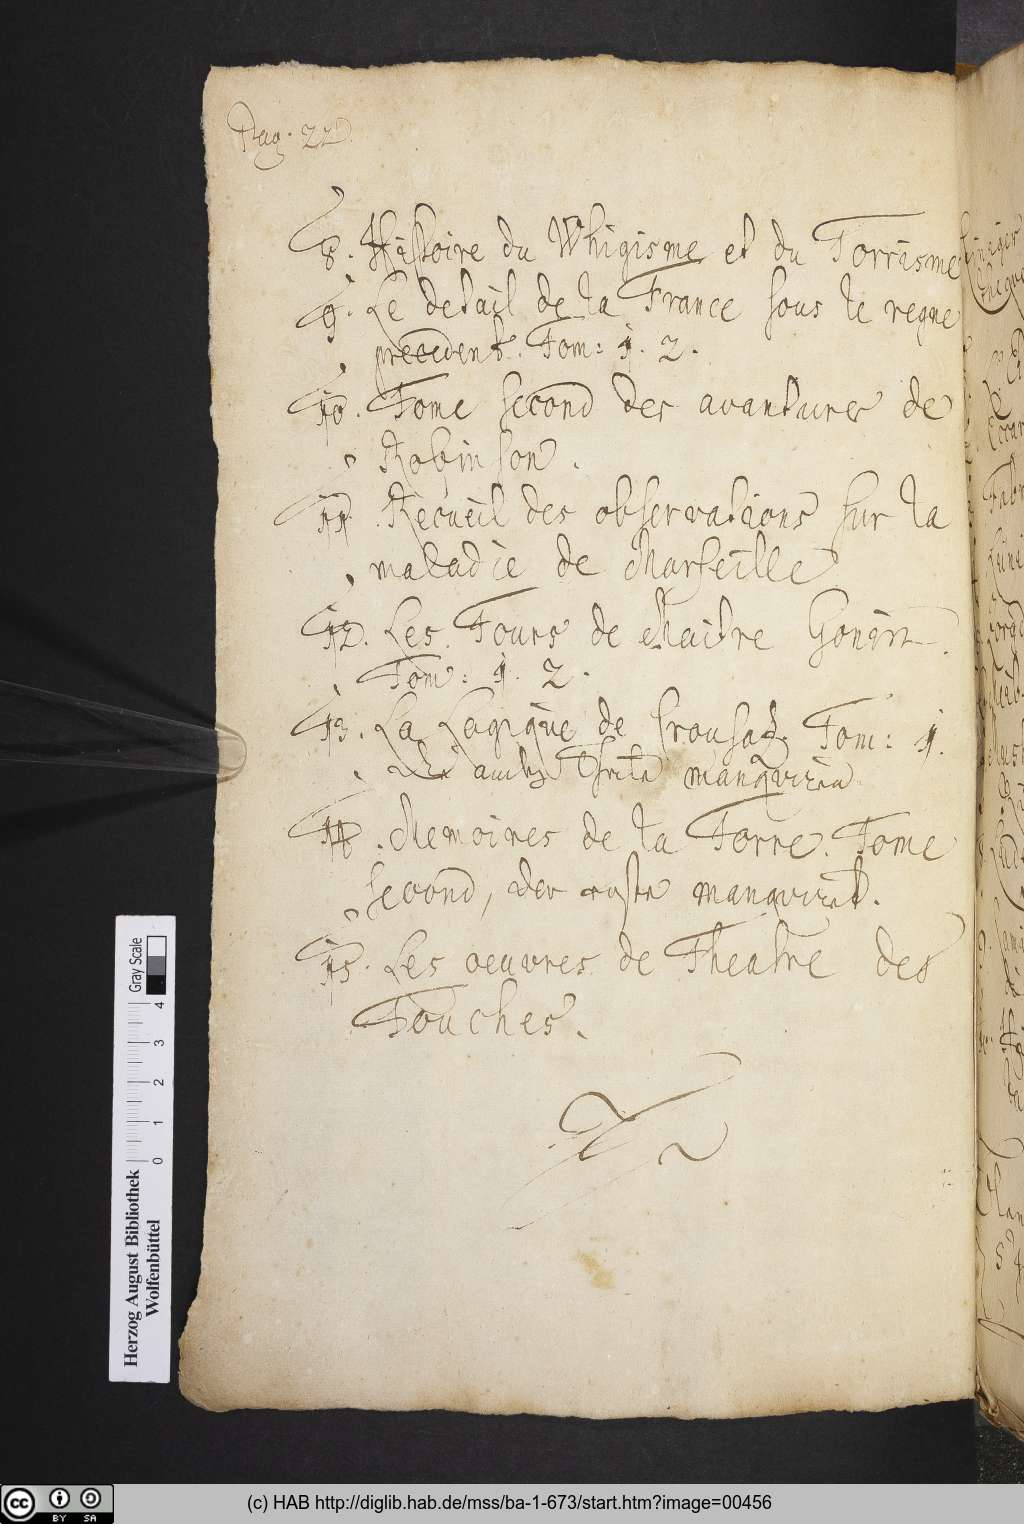 Pag. 22.
8. Histoire du Whigisme et du Torrisme
9. Le detail de la France sous le regne
precedent. Tom: 1. 2.
10. Tome second des avantures de
Robinson.
11. Recueil des observations sur la
maladie de Marseille
12. Les Tours de Maitre Gonin.
Tom: 1. 2.
13. La Lagique de Crousaz. Tom: 1.
die andre Theile manquiren
14. Memoires de la Torre. Tome
second, der erste manquiret.
15. Les oeuvres de Theatre des
Touches.
Gray Scale
0 1 2 3 4
Herzog August Bibliothek
Wolfenbüttel
cc BY SA
(c) HAB http://diglib.hab.de/mss/ba-1-673/start.htm?image=00456